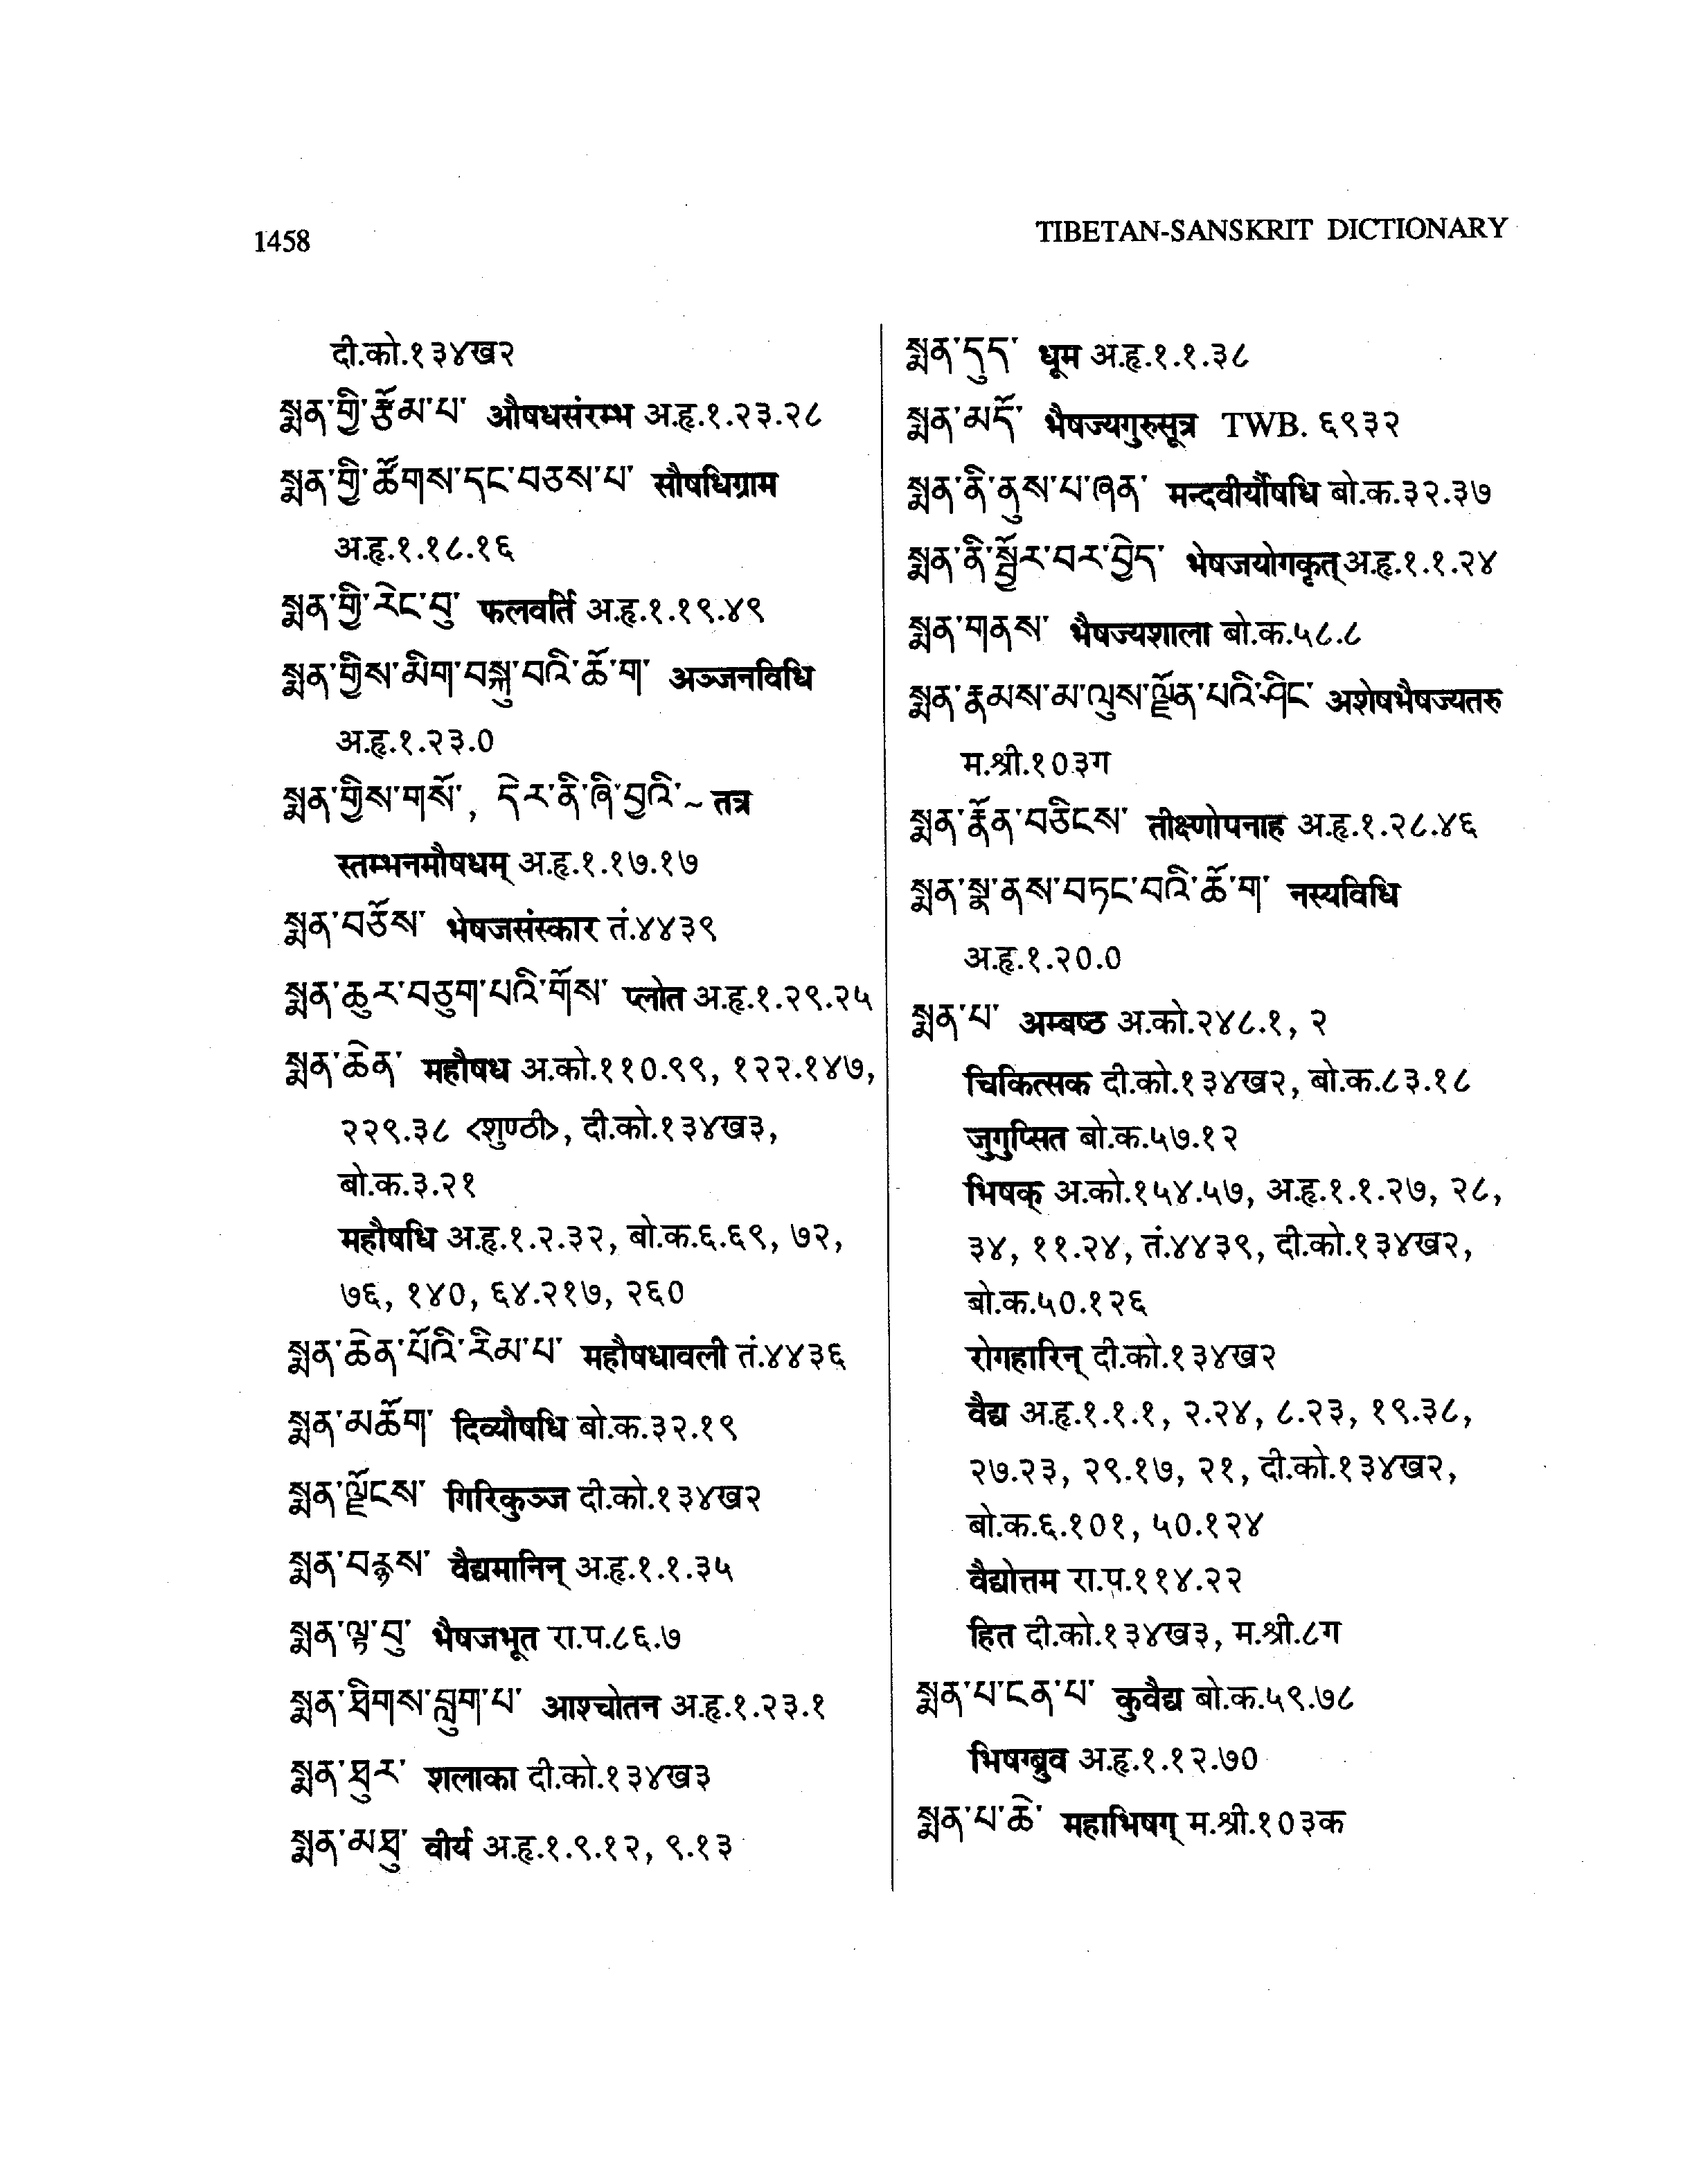 1458
TIBETAN-SANSKRIT DICTIONARY
दी.को.१३४ख२
སྨན་གྱི་རྩོམ་པ་ औषधसंरम्भ अ.हृ.१.२३.२८
སྨན་གྱི་ཚོགས་དང་བཅས་པ་ सौषधिग्राम
अ.हृ.१.१८.१६
སྨན་གྱི་རེང་བུ་ फलवर्ति अ.हृ.१.१९.४९
སྨན་གྱིས་མིག་བསྐུ་བའི་ཆོ་ག་ अञ्जनविधि
अ.हृ.१.२३.०
སྨན་གྱིས་གསོ་, དེར་ནི་ཞི་བྱའི་~ तत्र
स्तम्भनमौषधम् अ.हृ.१.१७.१७
སྨན་བཅོས་ भेषजसंस्कार तं.४४३९
སྨན་ཆུར་བཅུག་པའི་གོས་ प्लोत अ.हृ.१.२९.२५
སྨན་ཆེན་ महौषध अ.को.११०.९९, १२२.१४७,
२२९.३८ <शुण्ठी>, दी.को.१३४ख३,
बो.क.३.२१
महौषधि अ.हृ.१.२.३२, बो.क.६.६९, ७२,
७६, १४०, ६४.२१७, २६०
སྨན་ཆེན་པོའི་རིམ་པ་ महौषधावली तं.४४३६
སྨན་མཆོག་ दिव्यौषधि बो.क.३२.१९
སྨན་ལྗོངས་ गिरिकुञ्ज दी.को.१३४ख२
སྨན་བརྙས་ वैद्यमानिन् अ.हृ.१.१.३५
སྨན་ལྟ་བུ་ भैषजभूत रा.प.८६.७
སྨན་ཐིགས་བླུག་པ་ आश्चोतन अ.हृ.१.२३.१
སྨན་ཐུར་ शलाका दी.को.१३४ख३
སྨན་མཐུ་ वीर्य अ.हृ.१.९.१२, ९.१३
སྨན་དུད་ धूम अ.हृ.१.१.३८
སྨན་མདོ་ भैषज्यगुरुसूत्र TWB. ६९३२
སྨན་ནི་ནུས་པ་ཞན་ मन्दवीर्यौषधि बो.क.३२.३७
སྨན་ནི་སྦྱོར་བར་བྱེད་ भेषजयोगकृत् अ.हृ.१.१.२४
སྨན་གནས་ भैषज्यशाला बो.क.५८.८
སྨན་རྣམས་མ་ལུས་ལྗོན་པའི་ཤིང་ अशेषभैषज्यतरु
म.श्री.१०३ग
སྨན་རྣོན་བཅིངས་ तीक्ष्णोपनाह अ.हृ.१.२८.४६
སྨན་སྣ་ནས་བཏང་བའི་ཆོ་ག་ नस्यविधि
अ.हृ.१.२०.०
སྨན་པ་ अम्बष्ठ अ.को.२४८.१, २
चिकित्सक दी.को.१३४ख२, बो.क.८३.१८
जुगुप्सित बो.क.५७.१२
भिषक् अ.को.१५४.५७, अ.हृ.१.१.२७, २८,
३४, ११.२४, तं.४४३९, दी.को.१३४ख२,
बो.क.५०.१२६
रोगहारिन् दी.को.१३४ख२
वैद्य अ.हृ.१.१.१, २.२४, ८.२३, १९.३८,
२७.२३, २९.१७, २१, दी.को.१३४ख२,
बो.क.६.१०१, ५०.१२४
वैद्योत्तम रा.प.११४.२२
हित दी.को.१३४ख३, म.श्री.८ग
སྨན་པ་ངན་པ་ कुवैद्य बो.क.५९.७८
भिषग्ब्रुव अ.हृ.१.१२.७०
སྨན་པ་ཆེ་ महाभिषग् म.श्री.१०३क